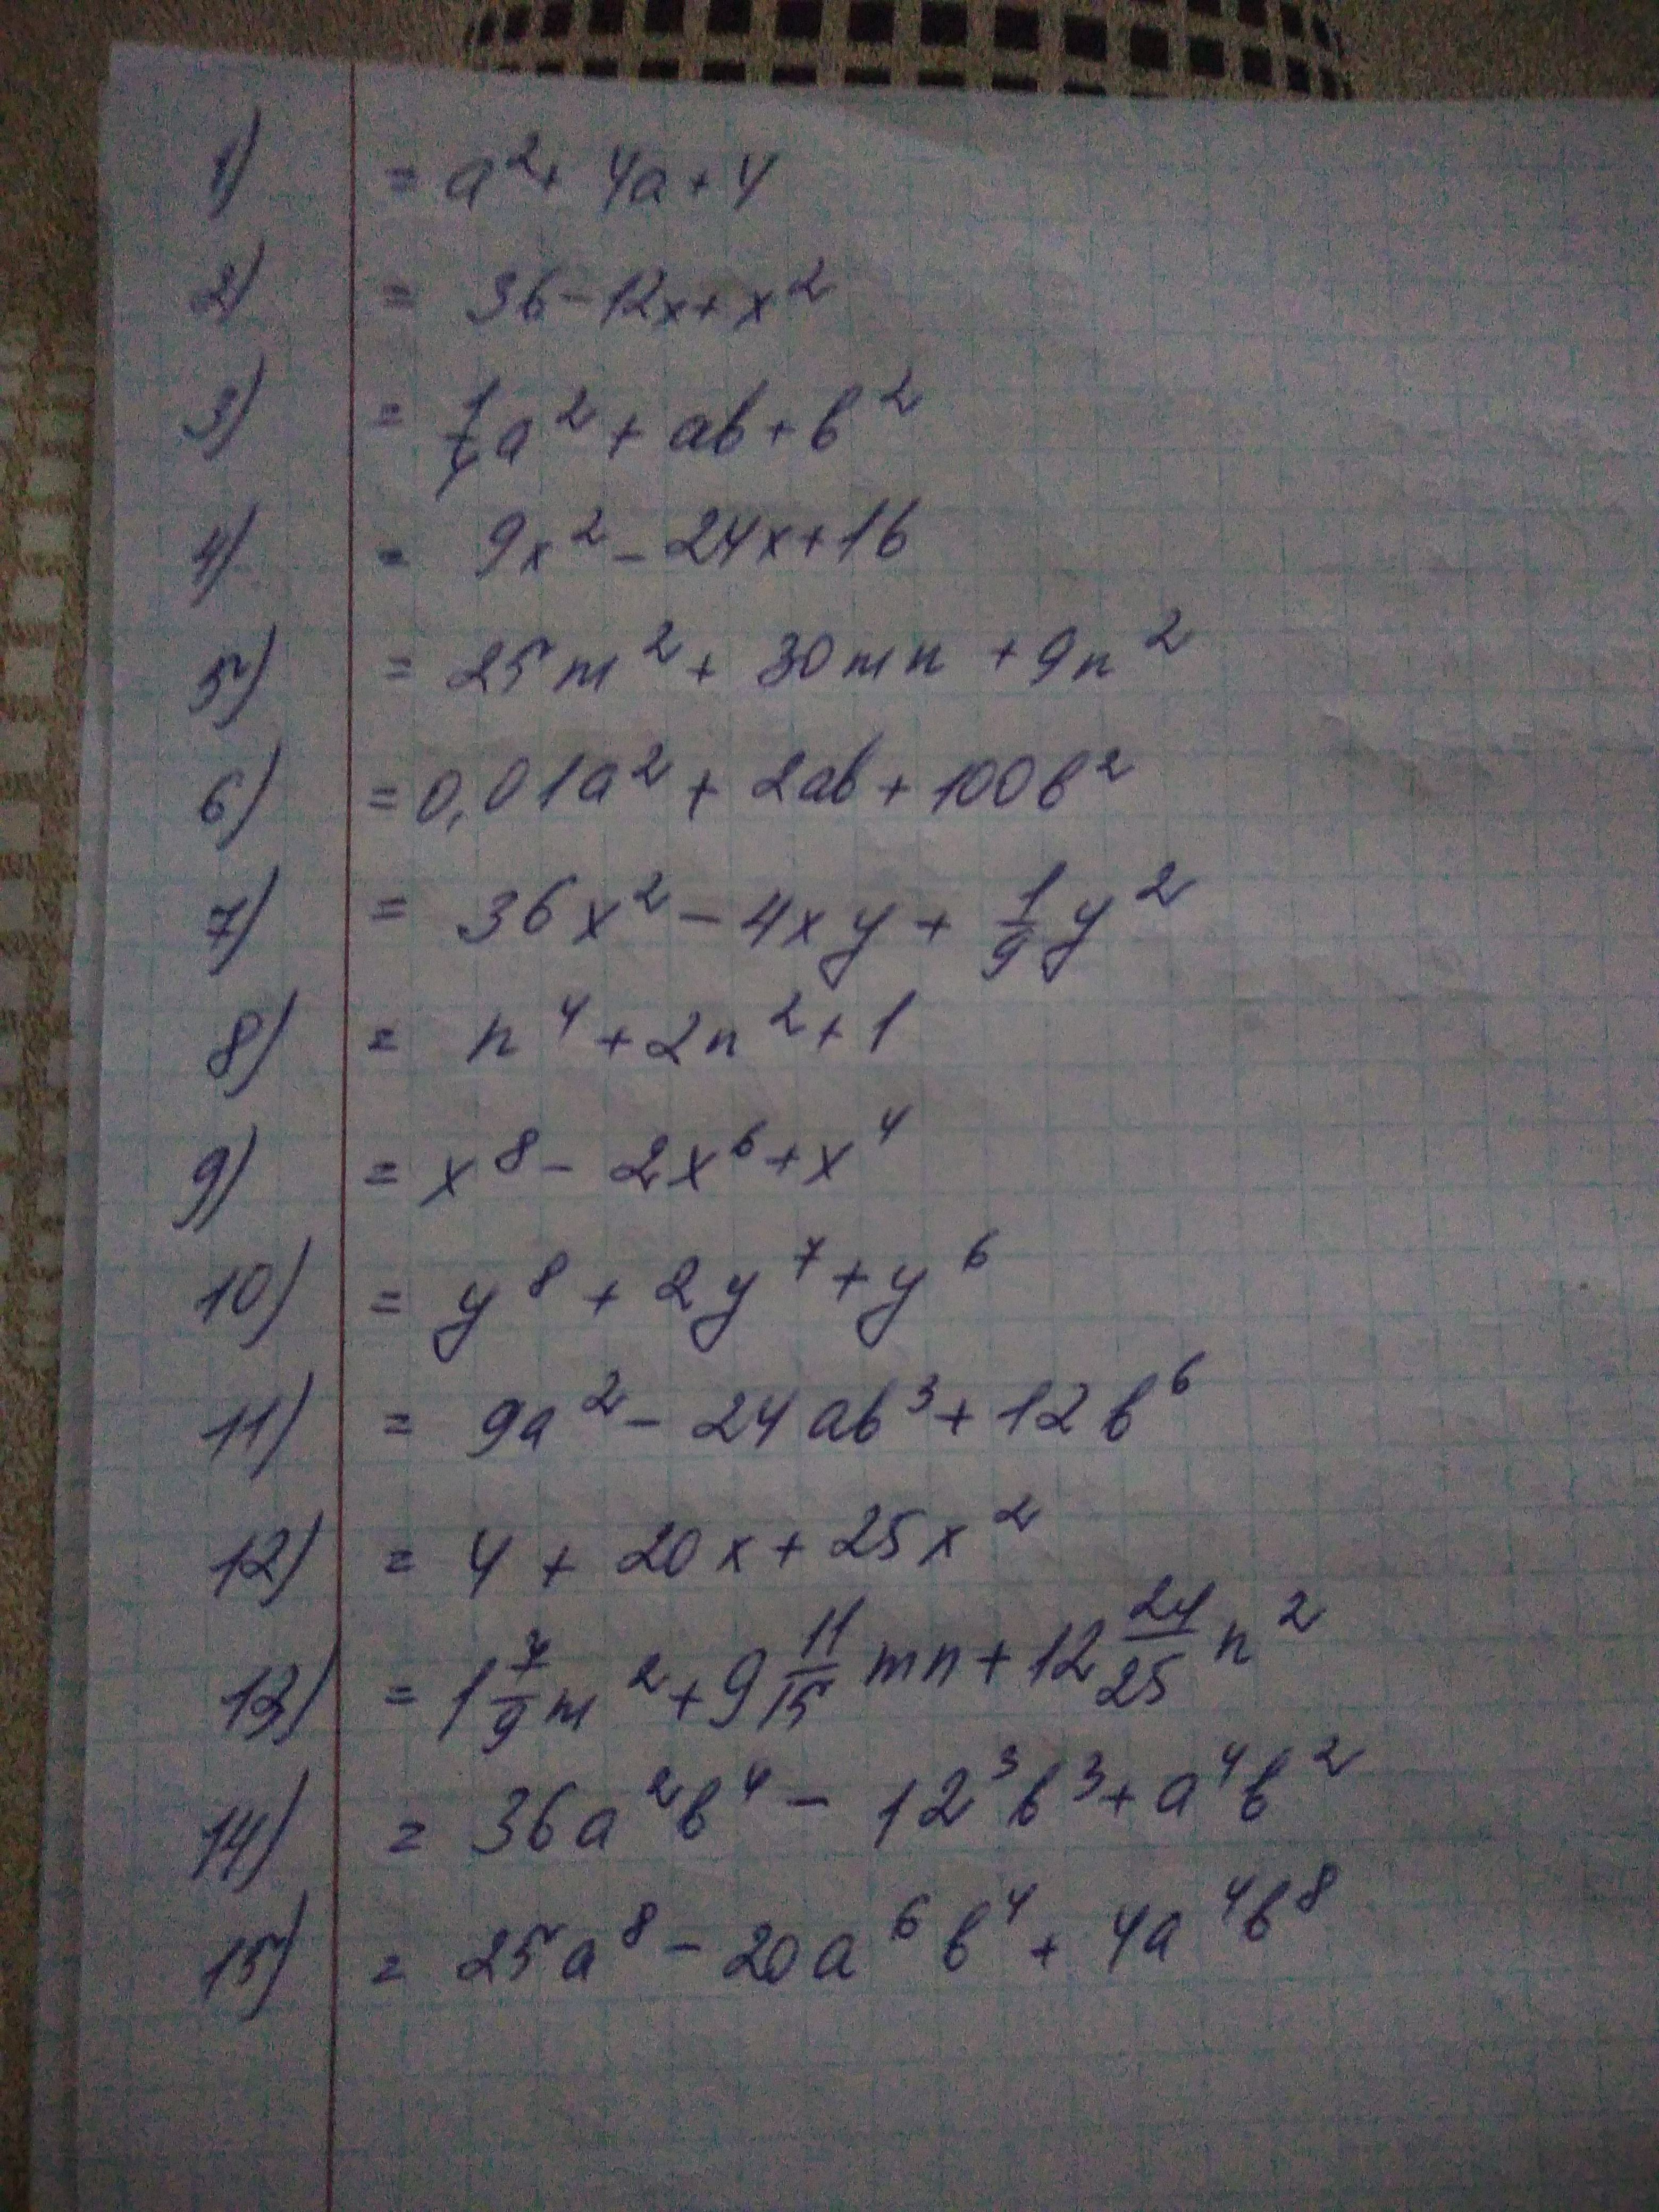 1) = a² + 4a + 4
2) = 36 - 12x + x²
3) = 1/4 a² + ab + b²
4) = 9x² - 24x + 16
5) = 25m² + 30mn + 9n²
6) = 0,01a² + 2ab + 100b²
7) = 36x² - 4xy + 1/9 y²
8) = n⁴ + 2n² + 1
9) = x⁸ - 2x⁶ + x⁴
10) = y⁸ + 2y⁷ + y⁶
11) = 9a² - 24ab³ + 12b⁶
12) = 4 + 20x + 25x²
13) = 1 7/9 m² + 9 11/15 mn + 12 24/25 n²
14) = 36a²b⁴ - 12³b³ + a⁴b²
15) = 25a⁸ - 20a⁶b⁴ + 4a⁴b⁸